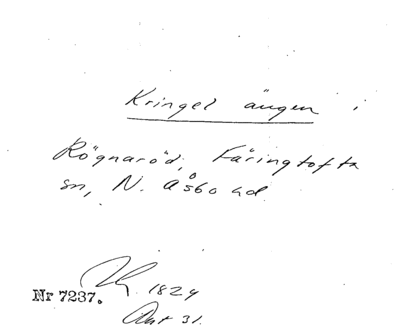 Kringel ängen i
Rögnaröd, Färingtofta
sn, N. Åsbo hd
Nr 7237. 1824
Akt 31.